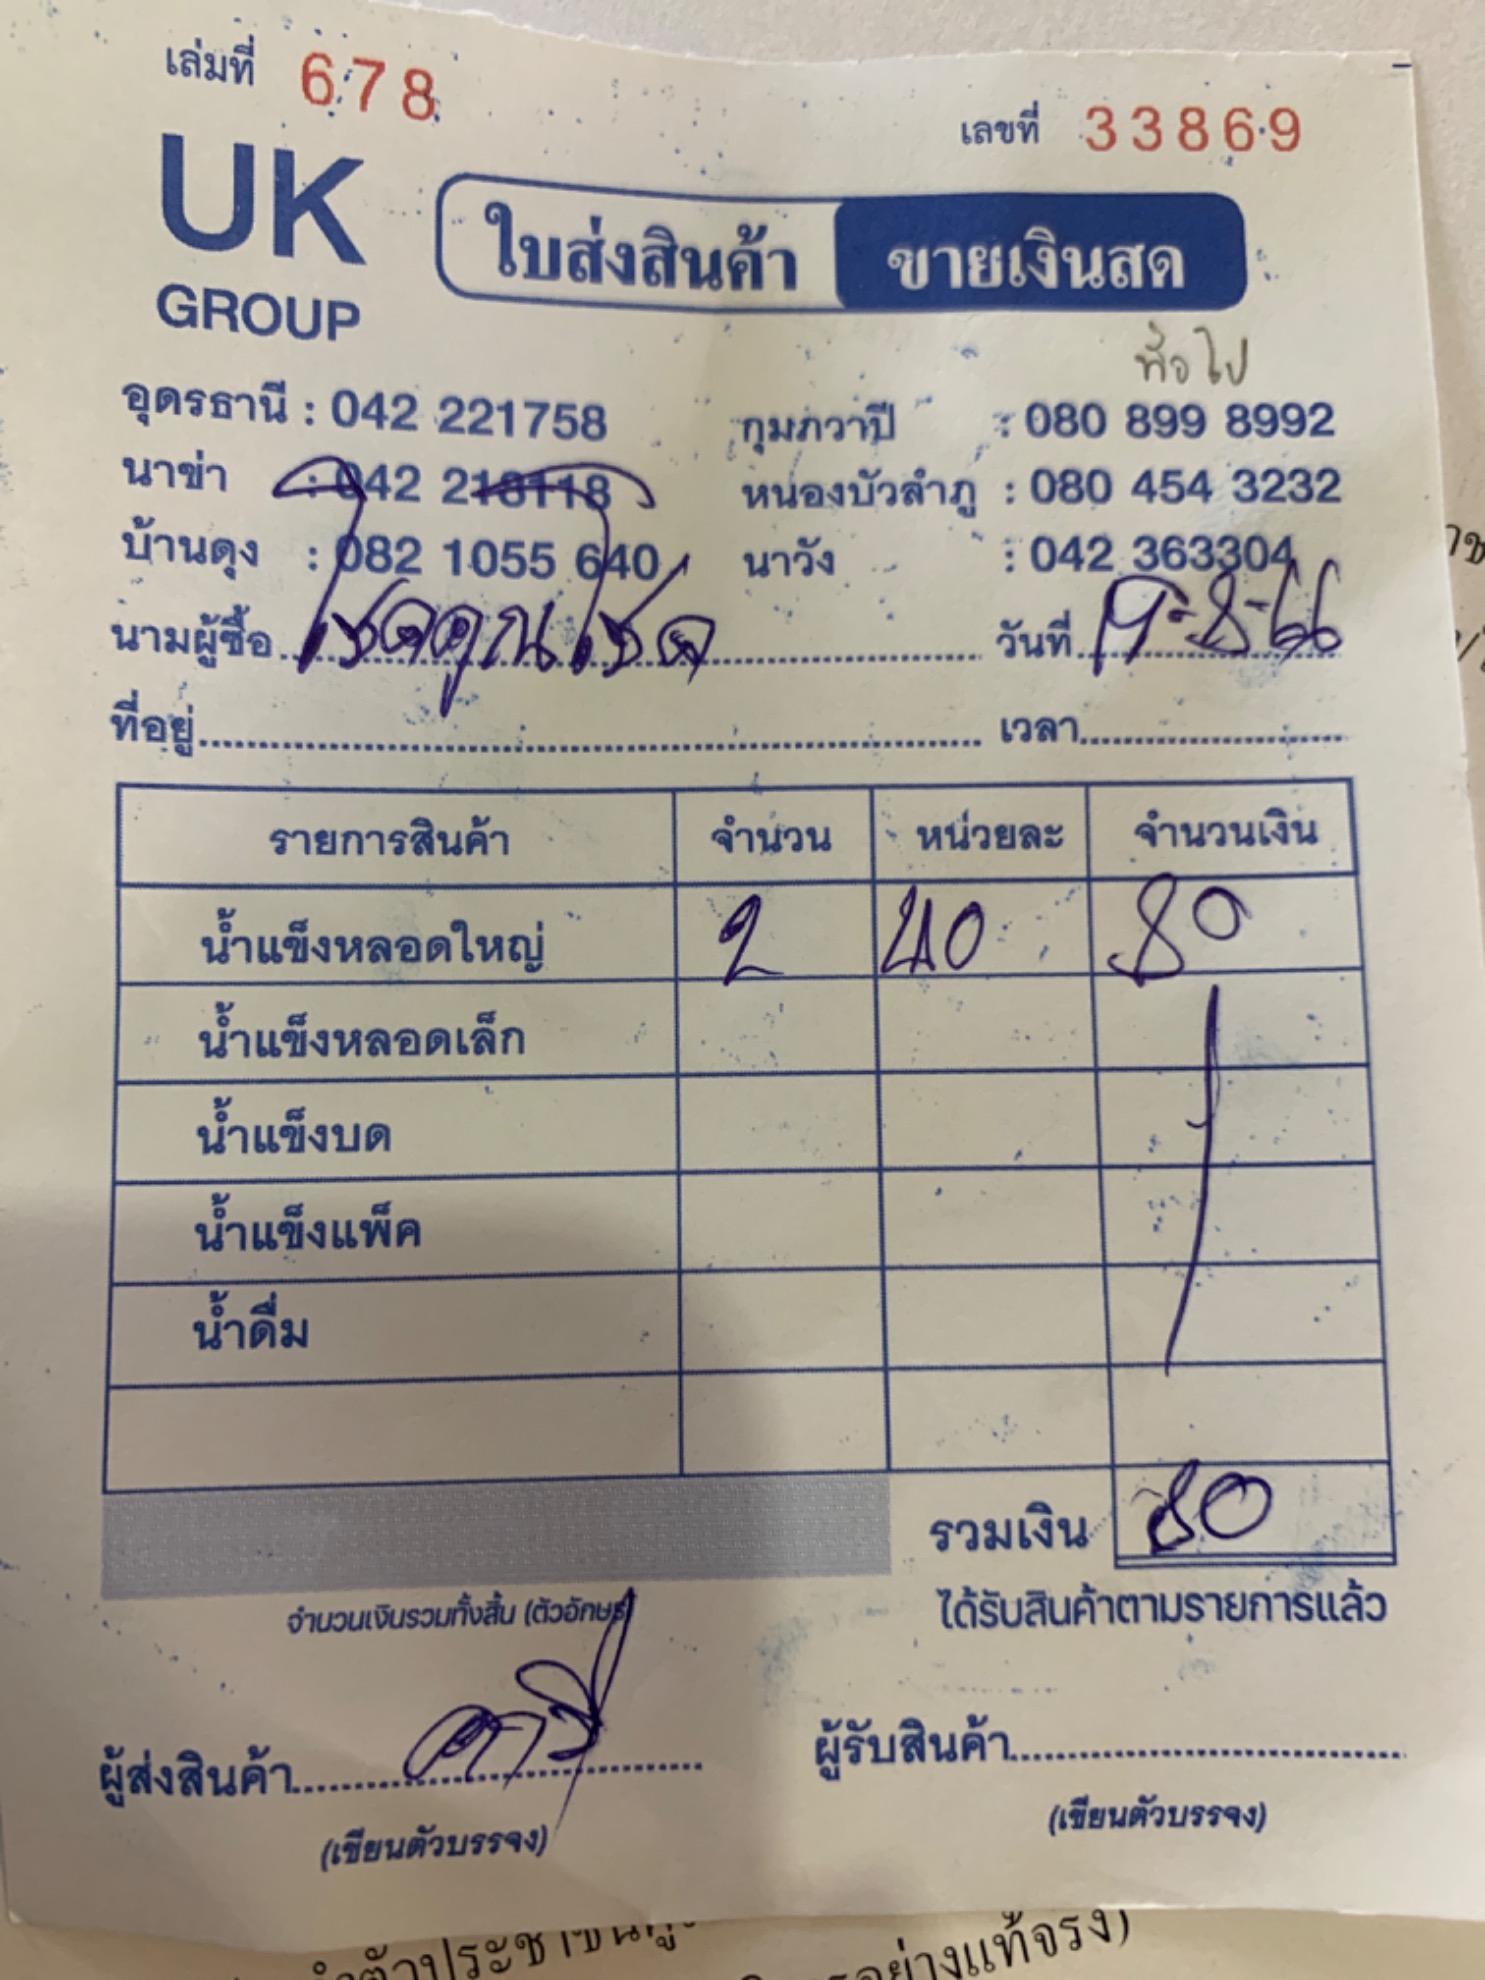 เล่มที่ 678
เลขที่ 33869
UK
GROUP
ใบส่งสินค้า ขายเงินสด
ทั่วไป
อุดรธานี : 042 221758 กุมภวาปี : 080 899 8992
นาข่า : 042 213118 หนองบัวลำภู : 080 454 3232
บ้านดุง : 082 1055 640 นาวัง : 042 363304
นามผู้ซื้อ โชคคูณโชค วันที่ 9-8-66
ที่อยู่ เวลา
รายการสินค้า จำนวน หน่วยละ จำนวนเงิน
น้ำแข็งหลอดใหญ่ 2 40 80
น้ำแข็งหลอดเล็ก
น้ำแข็งบด
น้ำแข็งแพ็ค
น้ำดื่ม
รวมเงิน 80
จำนวนเงินรวมทั้งสิ้น (ตัวอักษร) ได้รับสินค้าตามรายการแล้ว
ผู้ส่งสินค้า ผู้รับสินค้า
(เขียนตัวบรรจง) (เขียนตัวบรรจง)
อย่างแท้จริง)